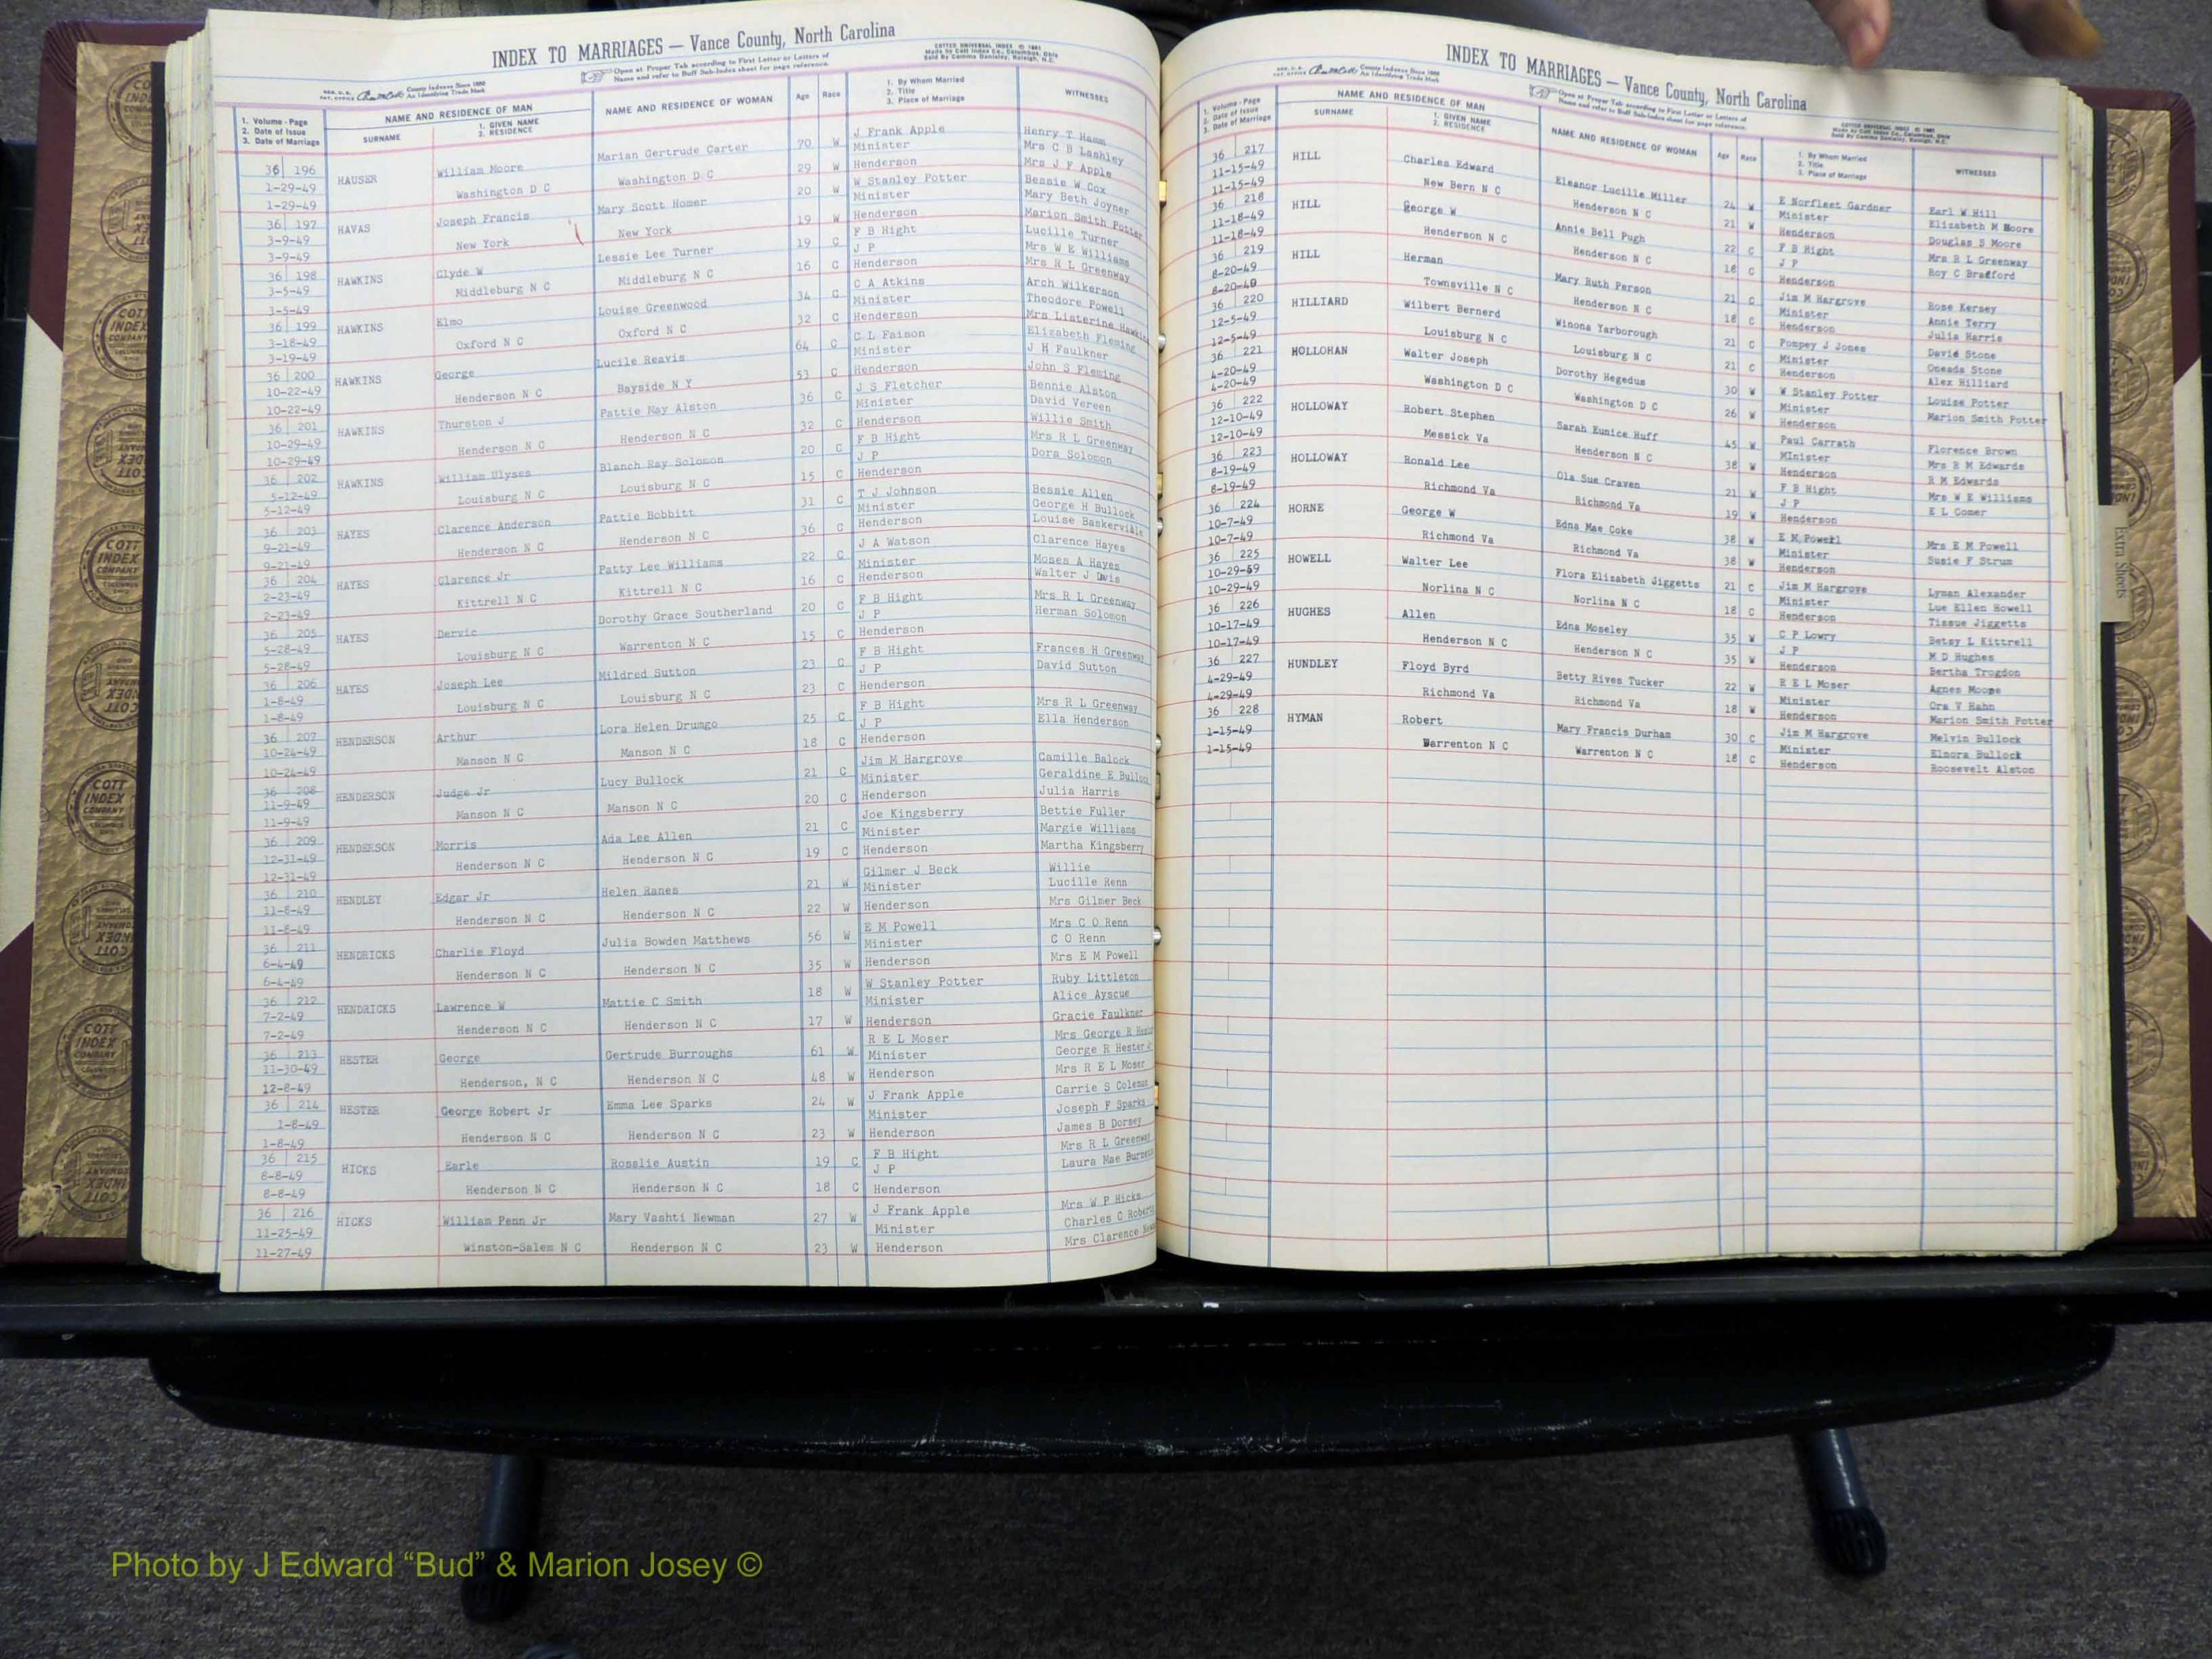 INDEX TO MARRIAGES — Vance County, North Carolina
Open at Proper Tab according to First Letter or Letters of
Name and refer to Buff Sub-Index sheet for page reference.
COTTED UNIVERSAL INDEX
Made by Cott Index Co., Columbus, Ohio
Sold By Comma Danieley, Raleigh, N.C.
County Indexes Since 1888
An Identifying Trade Mark
1. Volume - Page
2. Date of Issue
3. Date of Marriage
NAME AND RESIDENCE OF MAN
SURNAME
1. GIVEN NAME
2. RESIDENCE
NAME AND RESIDENCE OF WOMAN
Age Race
1. By Whom Married
2. Title
3. Place of Marriage
WITNESSES
36 196 HAUSER William Moore Marian Gertrude Carter 70 W J Frank Apple Henry T Hamm
1-29-49 Washington D C Washington D C 29 W Minister Mrs C B Lashley
1-29-49 Henderson Mrs J F Apple
36 197 HAVAS Joseph Francis Mary Scott Homer 20 W W Stanley Potter Bessie W Cox
3-9-49 New York New York 19 W Minister Mary Beth Joyner
3-9-49 Henderson Marion Smith Potter
36 198 HAWKINS Clyde W Lessie Lee Turner 19 C F B Hight Lucille Turner
3-5-49 Middleburg N C Middleburg N C 16 C J P Mrs W E Williams
3-5-49 Henderson Mrs R L Greenway
36 199 HAWKINS Elmo Louise Greenwood 34 C C A Atkins Arch Wilkerson
3-18-49 Oxford N C Oxford N C 32 C Minister Theodore Powell
3-19-49 Henderson Mrs Listerine Hawkins
36 200 HAWKINS George Lucile Reavis 64 C C L Faison Elizabeth Fleming
10-22-49 Henderson N C Bayside N Y 53 C Minister J H Faulkner
10-22-49 Henderson John S Fleming
36 201 HAWKINS Thurston J Pattie May Alston 36 C J S Fletcher Bennie Alston
10-29-49 Henderson N C Henderson N C 32 C Minister David Vereen
10-29-49 Henderson Willie Smith
36 202 HAWKINS William Ulyses Blanch Ray Solomon 20 C F B Hight Mrs R L Greenway
5-12-49 Louisburg N C Louisburg N C 15 C J P Dora Solomon
5-12-49 Henderson
36 203 HAYES Clarence Anderson Pattie Bobbitt 31 C T J Johnson Bessie Allen
9-21-49 Henderson N C Henderson N C 36 C Minister George H Bullock
9-21-49 Henderson Louise Baskerville
36 204 HAYES Clarence Jr Patty Lee Williams 22 C J A Watson Clarence Hayes
2-23-49 Kittrell N C Kittrell N C 16 C Minister Moses A Hayes
2-23-49 Henderson Walter J Davis
36 205 HAYES Dervic Dorothy Grace Southerland 20 C F B Hight Mrs R L Greenway
5-28-49 Louisburg N C Warrenton N C 15 C J P Herman Solomon
5-28-49 Henderson
36 206 HAYES Joseph Lee Mildred Sutton 23 C F B Hight Frances H Greenway
1-8-49 Louisburg N C Louisburg N C 23 C J P David Sutton
1-8-49 Henderson
36 207 HENDERSON Arthur Lora Helen Drumgo 25 C F B Hight Mrs R L Greenway
10-24-49 Manson N C Manson N C 18 C J P Ella Henderson
10-24-49 Henderson
36 208 HENDERSON Judge Jr Lucy Bullock 21 C Jim M Hargrove Camille Balock
11-9-49 Manson N C Manson N C 20 C Minister Geraldine E Bullock
11-9-49 Henderson Julia Harris
36 209 HENDERSON Morris Ada Lee Allen 21 C Joe Kingsberry Bettie Fuller
12-31-49 Henderson N C Henderson N C 19 C Minister Margie Williams
12-31-49 Henderson Martha Kingsberry
36 210 HENDLEY Edgar Jr Helen Ranes 21 W Gilmer J Beck Willie
11-8-49 Henderson N C Henderson N C 22 W Minister Lucille Renn
11-8-49 Henderson Mrs Gilmer Beck
36 211 HENDRICKS Charlie Floyd Julia Bowden Matthews 56 W E M Powell Mrs C O Renn
6-4-49 Henderson N C Henderson N C 35 W Minister C O Renn
6-4-49 Henderson Mrs E M Powell
36 212 HENDRICKS Lawrence W Mattie C Smith 18 W W Stanley Potter Ruby Littleton
7-2-49 Henderson N C Henderson N C 17 W Minister Alice Ayscue
7-2-49 Henderson Gracie Faulkner
36 213 HESTER George Gertrude Burroughs 61 W R E L Moser Mrs George R
11-30-49 Henderson, N C Henderson N C 48 W Minister George R Hester
12-8-49 Henderson Mrs R E L Moser
36 214 HESTER George Robert Jr Emma Lee Sparks 24 W J Frank Apple Carrie S Coleman
1-8-49 Henderson N C Henderson N C 23 W Minister Joseph F Sparks
1-8-49 Henderson James B Dorsey
36 215 HICKS Earle Rosalie Austin 19 C F B Hight Mrs R L Greenway
8-8-49 Henderson N C Henderson N C 18 C J P Laura Mae
8-8-49 Henderson
36 216 HICKS William Penn Jr Mary Vashti Newman 27 W J Frank Apple Mrs W P Hicks
11-25-49 Winston-Salem N C Henderson N C 23 W Minister Charles C
11-27-49 Henderson Mrs Clarence
INDEX TO MARRIAGES — Vance County, North Carolina
Open at Proper Tab according to First Letter or Letters of
Name and refer to Buff Sub-Index sheet for page reference.
County Indexes Since 1888
An Identifying Trade Mark
COTTED UNIVERSAL INDEX
Made by Cott Index Co., Columbus, Ohio
Sold By Comma Danieley, Raleigh, N.C.
1. Volume - Page
2. Date of Issue
3. Date of Marriage
NAME AND RESIDENCE OF MAN
SURNAME
1. GIVEN NAME
2. RESIDENCE
NAME AND RESIDENCE OF WOMAN
Age Race
1. By Whom Married
2. Title
3. Place of Marriage
WITNESSES
36 217 HILL Charles Edward Eleanor Lucille Miller 24 W E Norfleet Gardner Earl W Hill
11-15-49 New Bern N C Henderson N C 21 W Minister Elizabeth M Moore
11-15-49 Henderson Douglas S Moore
36 218 HILL George W Annie Bell Pugh 22 C F B Hight Mrs R L Greenway
11-18-49 Henderson N C Henderson N C 18 C J P Roy C Bradford
11-18-49 Henderson
36 219 HILL Herman Mary Ruth Person 21 C Jim M Hargrove Rose Kersey
8-20-49 Townsville N C Henderson N C 18 C Minister Annie Terry
8-20-49 Henderson Julia Harris
36 220 HILLIARD Wilbert Bernerd Winona Yarborough 21 C Pompey J Jones David Stone
12-5-49 Louisburg N C Louisburg N C 21 C Minister Oneada Stone
12-5-49 Henderson Alex Hilliard
36 221 HOLLOHAN Walter Joseph Dorothy Hegedus 30 W W Stanley Potter Louise Potter
4-20-49 Washington D C Washington D C 26 W Minister Marion Smith Potter
4-20-49 Henderson
36 222 HOLLOWAY Robert Stephen Sarah Eunice Huff 45 W Paul Carrath Florence Brown
12-10-49 Messick Va Henderson N C 38 W MInister Mrs R M Edwards
12-10-49 Henderson R M Edwards
36 223 HOLLOWAY Ronald Lee Ola Sue Craven 21 W F B Hight Mrs W E Williams
8-19-49 Richmond Va Richmond Va 19 W J P E L Comer
8-19-49 Henderson
36 224 HORNE George W Edna Mae Coke 38 W E M Powell Mrs E M Powell
10-7-49 Richmond Va Richmond Va 38 W Minister Susie F Strum
10-7-49 Henderson
36 225 HOWELL Walter Lee Flora Elizabeth Jiggetts 21 C Jim M Hargrove Lyman Alexander
10-29-59 Norlina N C Norlina N C 18 C Minister Lue Ellen Howell
10-29-49 Henderson Tissue Jiggetts
36 226 HUGHES Allen Edna Moseley 35 W C P Lowry Betsy L Kittrell
10-17-49 Henderson N C Henderson N C 35 W J P M D Hughes
10-17-49 Henderson Bertha Trogdon
36 227 HUNDLEY Floyd Byrd Betty Rives Tucker 22 W R E L Moser Agnes Moore
4-29-49 Richmond Va Richmond Va 18 W Minister Ora V Hahn
4-29-49 Henderson Marion Smith Potter
36 228 HYMAN Robert Mary Francis Durham 30 C Jim M Hargrove Melvin Bullock
1-15-49 Warrenton N C Warrenton N C 18 C Minister Elnora Bullock
1-15-49 Henderson Roosevelt Alston
Extra Sheets
COTT
INDEX
COMPANY
Photo by J Edward “Bud” & Marion Josey ©